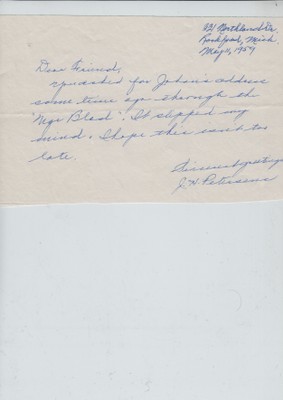 Northland Dr.
Rockford, Mich
May 11, 1959
Dear Friend,
You asked for John's address
some time ago through th
"Nge Blad". It slipped my
mind. I hope this isnt too
late.
Sincerely yours
J. H. Petersens